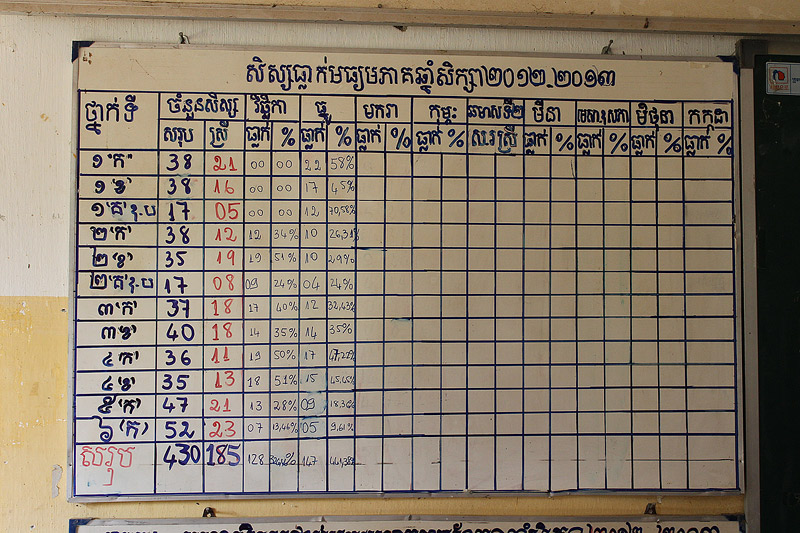 សិស្សធ្លាក់មធ្យមភាគឆ្នាំសិក្សា២០១២-២០១៣
ថ្នាក់ទី ចំនួនសិស្ស វិច្ឆិកា ធ្នូ មករា កុម្ភៈ ឆមាសទី២ មីនា មេសា.ឧសភា មិថុនា កក្កដា
សរុប ស្រី ធ្លាក់ % ធ្លាក់ % ធ្លាក់ % ធ្លាក់ % សរុប ស្រី ធ្លាក់ % ធ្លាក់ % ធ្លាក់ % ធ្លាក់ %
១"ក" 38 21 00 00 22 58%
១"ខ" 38 16 00 00 17 45%
១"គ" 17 05 00 00 12 70,58%
២"ក" 38 12 12 34% 10 26,31%
២"ខ" 35 19 19 51% 10 29%
២"គ" 17 08 09 24% 04 24%
៣"ក" 37 18 17 40% 12 32,43%
៣"ខ" 40 18 14 35% 14 35%
៤"ក" 36 11 19 50% 17 47,22%
៤"ខ" 35 13 18 51% 15
៥"ក" 47 21 13 28% 09
៦"ក" 52 23 07 13,46% 05 9,61%
សរុប 430 185 128 147